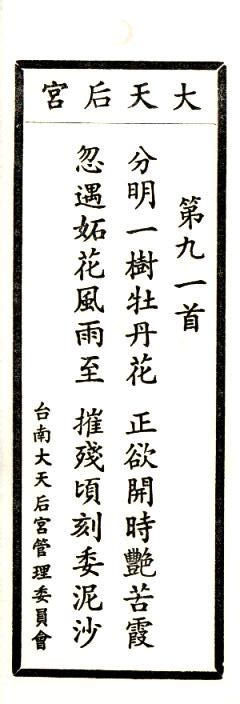 大天后宮
第九一首
分明一樹牡丹花 正欲開時艷苦霞
忽遇妬花風雨至 摧殘頃刻委泥沙
台南大天后宮管理委員會